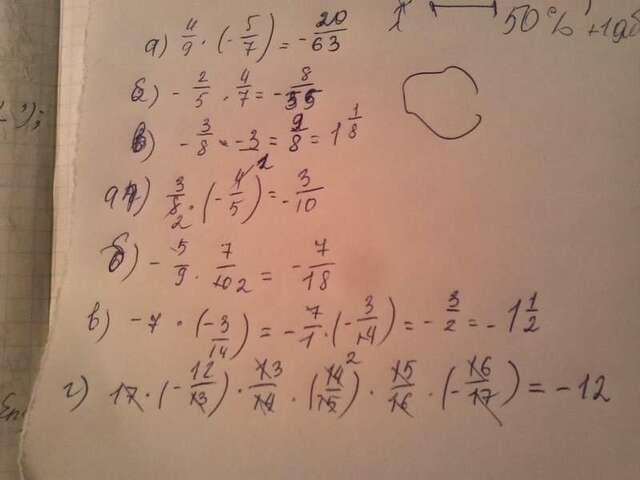 50 % +1 об
а) 4/9 · (- 5/7) = - 20/63
б) - 2/5 · 4/7 = - 8/35
в) - 3/8 · -3 = 9/8 = 1 1/8
а) 3/8 2 · (- 4/5) 1 = - 3/10
б) - 5/9 · 7/10 2 = - 7/18
в) -7 · (-3/14) = - 7/1 · (- 3/14) = - 3/2 = - 1 1/2
г) 17 · (- 12/13) · 13/14 · (14/15) 2 · 15/16 · (- 16/17) = - 12